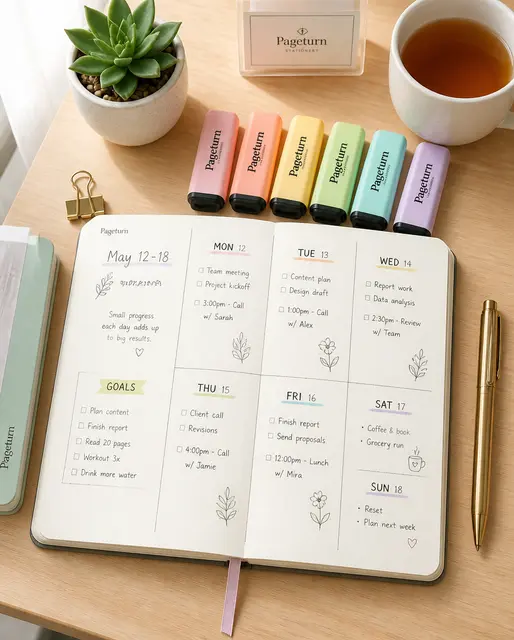 Pageturn
STATIONERY
Pageturn
Pageturn
Pageturn
Pageturn
Pageturn
Pageturn
Pageturn
May 12-18
Small progress
each day adds up
to big results.
MON 12
Team meeting
Project kickoff
3:00pm - Call
w/ Sarah
TUE 13
Content plan
Design draft
1:00pm - Call
w/ Alex
WED 14
Report work
Data analysis
2:30pm - Review
w/ Team
GOALS
Plan content
Finish report
Read 20 pages
Workout 3x
Drink more water
THU 15
Client call
Revisions
4:00pm - Call
w/ Jamie
FRI 16
Finish report
Send proposals
12:00pm - Lunch
w/ Mira
SAT 17
Coffee & book
Grocery run
SUN 18
Reset
Plan next week
Pageturn